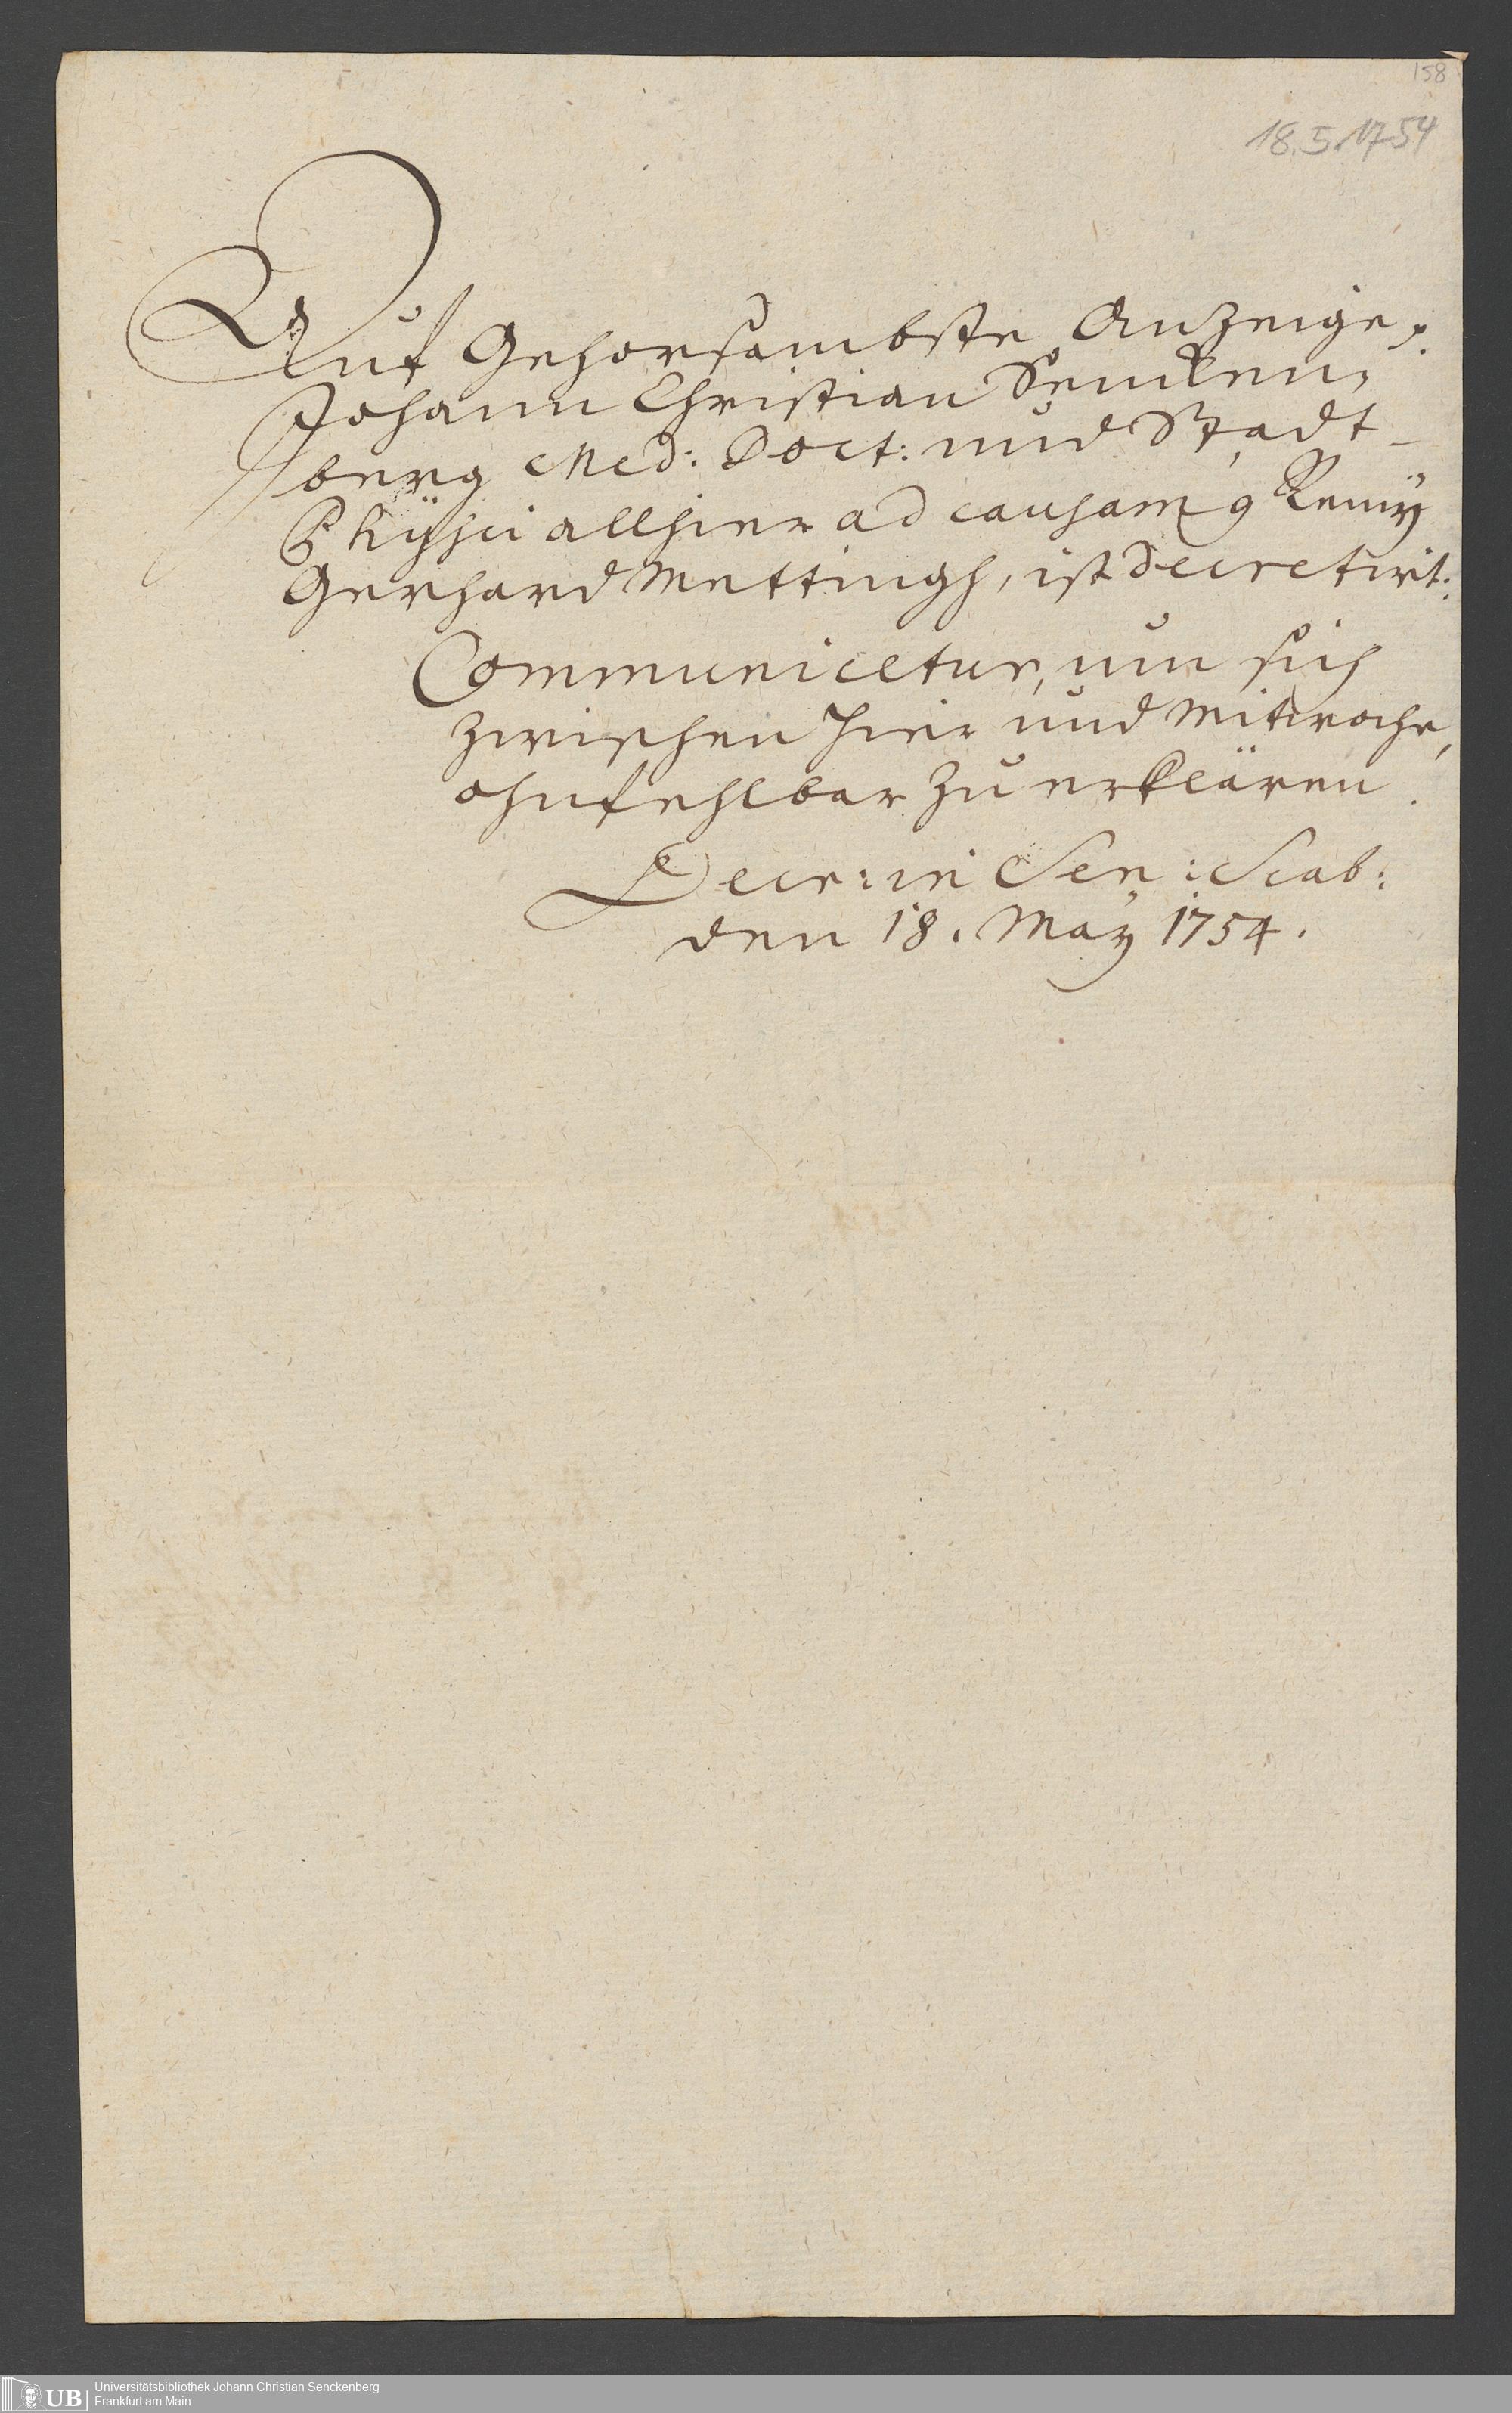 158
18.5.1754
Auf Gehorsambste Anzeige,
Johann Christian Sencken,
berg Med: Doct: und Stadt-
Physici allhier ad causam Remy
Gerhard Mettingh, ist decretirt:
Communicetur, um sich
zwischen hier und Mitwoche,
ohnfehlbar zu erklären.
Decr: in Sen: Scab:
den 18. May 1754.
UB
Universitätsbibliothek Johann Christian Senckenberg
Frankfurt am Main